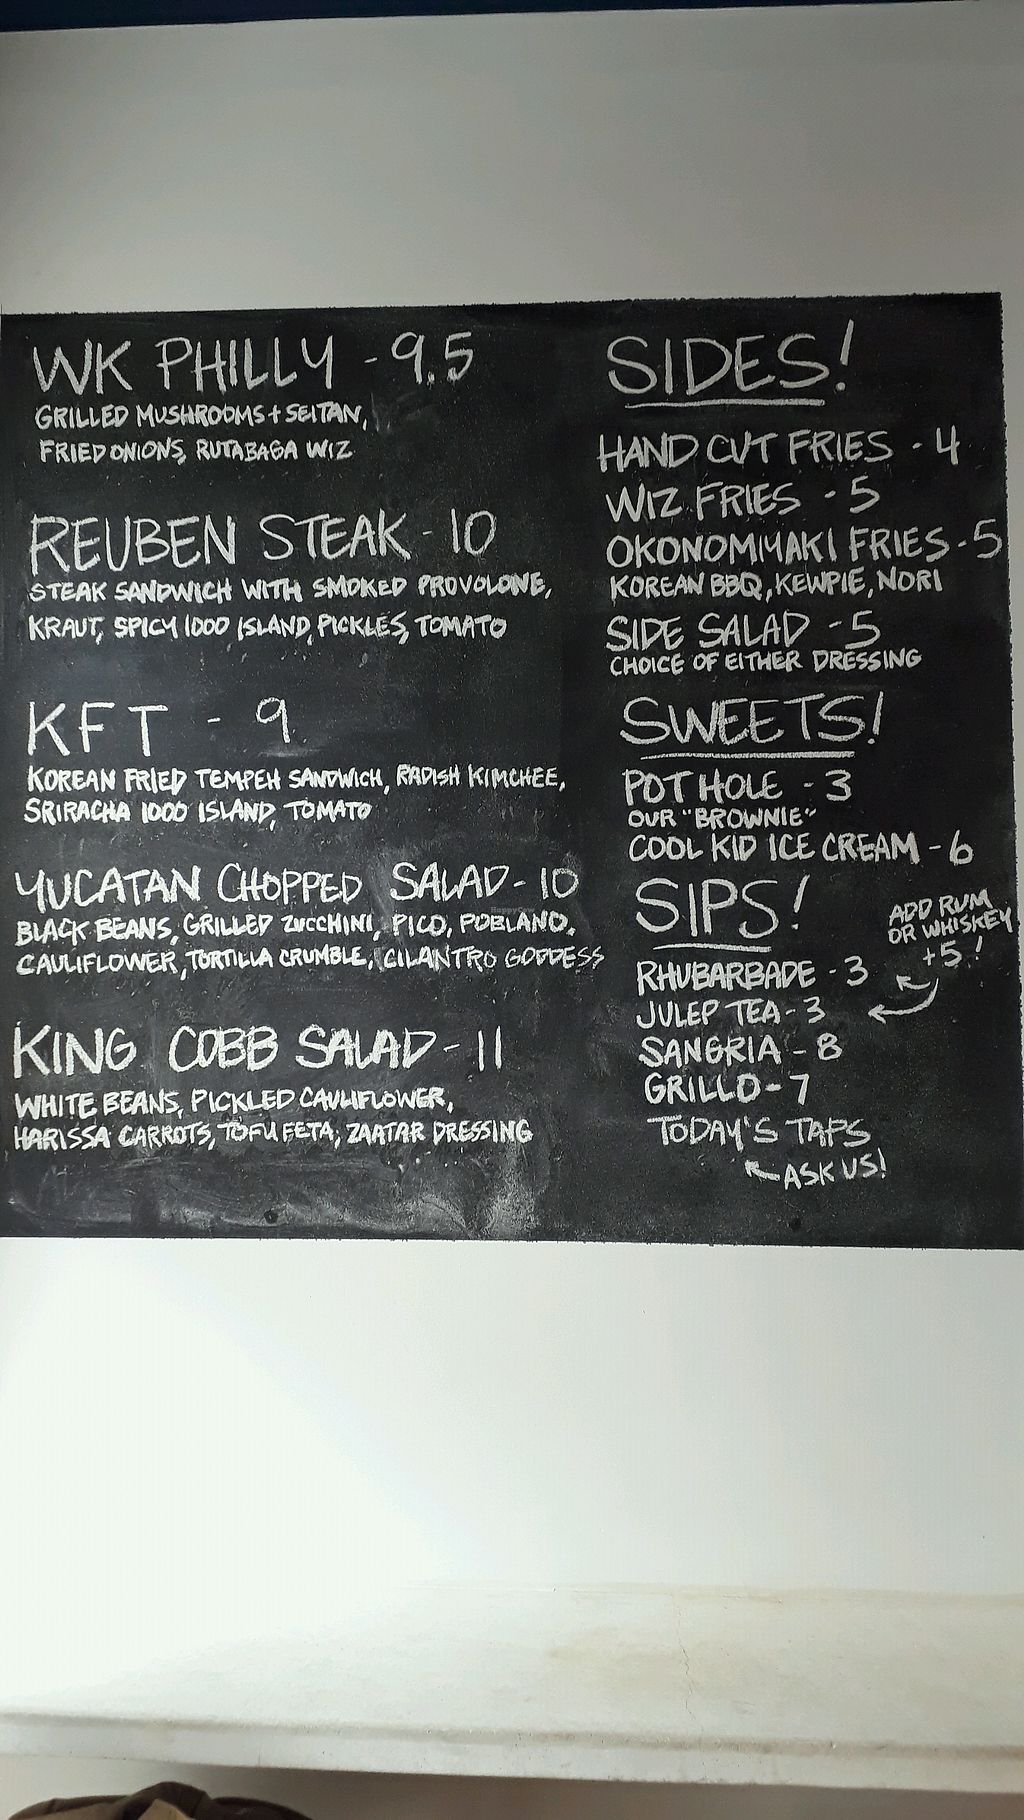 WK PHILLY - 9.5
GRILLED MUSHROOMS + SEITAN,
FRIED ONIONS, RUTABAGA WIZ
REUBEN STEAK - 10
STEAK SANDWICH WITH SMOKED PROVOLONE,
KRAUT, SPICY 1000 ISLAND, PICKLES, TOMATO
KFT - 9
KOREAN FRIED TEMPEH SANDWICH, RADISH KIMCHEE,
SRIRACHA 1000 ISLAND, TOMATO
YUCATAN CHOPPED SALAD - 10
BLACK BEANS, GRILLED ZUCCHINI, PICO, POBLANO,
CAULIFLOWER, TORTILLA CRUMBLE, CILANTRO GODDESS
KING COBB SALAD - 11
WHITE BEANS, PICKLED CAULIFLOWER,
HARISSA CARROTS, TOFU FETA, ZAATAR DRESSING
SIDES!
HAND CUT FRIES - 4
WIZ FRIES - 5
OKONOMIYAKI FRIES - 5
KOREAN BBQ, KEWPIE, NORI
SIDE SALAD - 5
CHOICE OF EITHER DRESSING
SWEETS!
POT HOLE - 3
OUR "BROWNIE"
COOL KID ICE CREAM - 6
SIPS!
ADD RUM
OR WHISKEY
+5!
RHUBARBADE - 3
JULEP TEA - 3
SANGRIA - 8
GRILLO - 7
TODAY'S TAPS
ASK US!